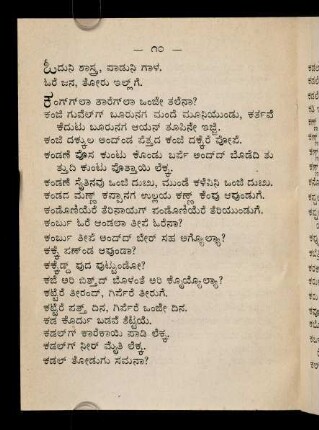 — ೧೦ —
ಓದುನಿ ಶಾಸ್ತ್ರ, ಪಾಡುನಿ ಗಾಳ.
ಓರೆ ಜನ, ತೋರು ಇಲ್ಲ್‌ಗೆ.
ಕಂಗ್‌ಗ್‌ಲಾ ತಾರೆಗ್‌ಲಾ ಒಂಜೇ ತಲೆನಾ?
ಕಂಜಿ ಗುವೆಲ್‌ಗ್ ಬೂರುನಗ ಮಂದೆ ಮೂನಿಯುಂಡು, ಕರ್ತವೆ
ಕೆದುಟು ಬೂರುನಗ ಆಯನ್ ತೂಪಿನೇ ಇಜ್ಜಿ.
ಕಂಜಿ ದಕ್ಕುಲ ಅಂದ್‌ಂಡ ಪೆತ್ತದ ಕಂಜಿ ದಕ್ಕೆರೆ ಪೋಪೆ.
ಕಂಡಣಿ ಪೊಸ ಕುಂಟು ಕೊಂಡು ಬರ್ಪೆ ಅಂದ್‌ದ್ ಬೊಡೆದಿ ತು
ತ್ತುದಿ ಕುಂಟು ಪೊತ್ತಾಯಿ ಲೆಕ್ಕ.
ಕಂಡಣೆ ಸೈತಿನವು ಒಂಜಿ ದುಃಖ, ಮುಂಡೆ ಕಳೆವಿನಿ ಒಂಜಿ ದುಃಖ.
ಕಂಡದ ಮಣ್ಣ್ ಕನ್ಪಾನಗ ಉಲ್ಲಯ ಕಣ್ಣ್ ಕೆಂಪು ಆವುಂಡುಗೆ.
ಕಂಡೊಣಿಯೆರೆ ತೆರಿನಾಯಗ್ ಪಂಡೊಣಿಯೆರೆ ತೆರಿಯುಂಡುಗೆ.
ಕಂರ್ಬು ಓರೆ ಆಂಡಲಾ ತೀಪೆ ಓರೆನಾ?
ಕಂರ್ಬು ತೀಪೆ ಅಂದ್‌ದ್ ಬೇರ್ ಸಹ ಅಗ್ಯೊಲ್ಯಾ?
ಕಕ್ಕೆ ಪಣ್‌ಂಡ ಆವುಂಡಾ?
ಕಕ್ಕೆಡ್ದ್ ಪುದ ಪುಟ್ಟುಂಡೋ?
ಕಜೆ ಅರಿ ಬಿತ್ತ್‌ದ್ ಬೊಳಂತೆ ಅರಿ ಕ್ಯೊಯ್ಯೊಲ್ಯಾ?
ಕಟ್ಟೆರೆ ತೀರಂದ್, ಗಿರ್ಸೆರೆ ತೀರುಗೆ.
ಕಟ್ಟೆರೆ ಪತ್ತ್ ದಿನ, ಗಿರ್ಸೆರೆ ಒಂಜೇ ದಿನ.
ಕಡ ಕೊರ್ದು ಬಡವೆ ಕೆಟ್ಟಯೆ.
ಕಡಲ್‌ಗ್ ಕಾರೆಕಾಯಿ ಪಾಡಿ ಲೆಕ್ಕ.
ಕಡಲ್‌ಗ್ ನೀರ್ ಮೈತಿ ಲೆಕ್ಕ.
ಕಡಲ್ ತೋಡುಗು ಸಮನಾ?